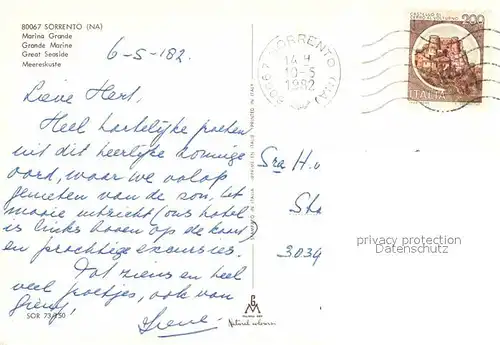 80067 SORRENTO (NA)
Marina Grande
Grande Marine
Great Seaside
Meereskuste
6-5-'82.
Lieve Hert,
Heel hartelijke groeten
uit dit heerlijke zonnige
oord, waar we volop
genieten van de zon, het
mooie uitzicht (ons hotel
is links boven op de kaart)
en prachtige excursies.
Tot ziens en heel
veel groetjes, ook van
Irene
SOR 73/150
PRINTED IN ITALY
MILANO
Natural colours
80067 SORRENTO (NA)
14 H
10-5
1982
CASTELLO DI
CERRO AL VOLTURNO
200
ITALIA
Sra H.v
Sta
3034
privacy protection
Datenschutz